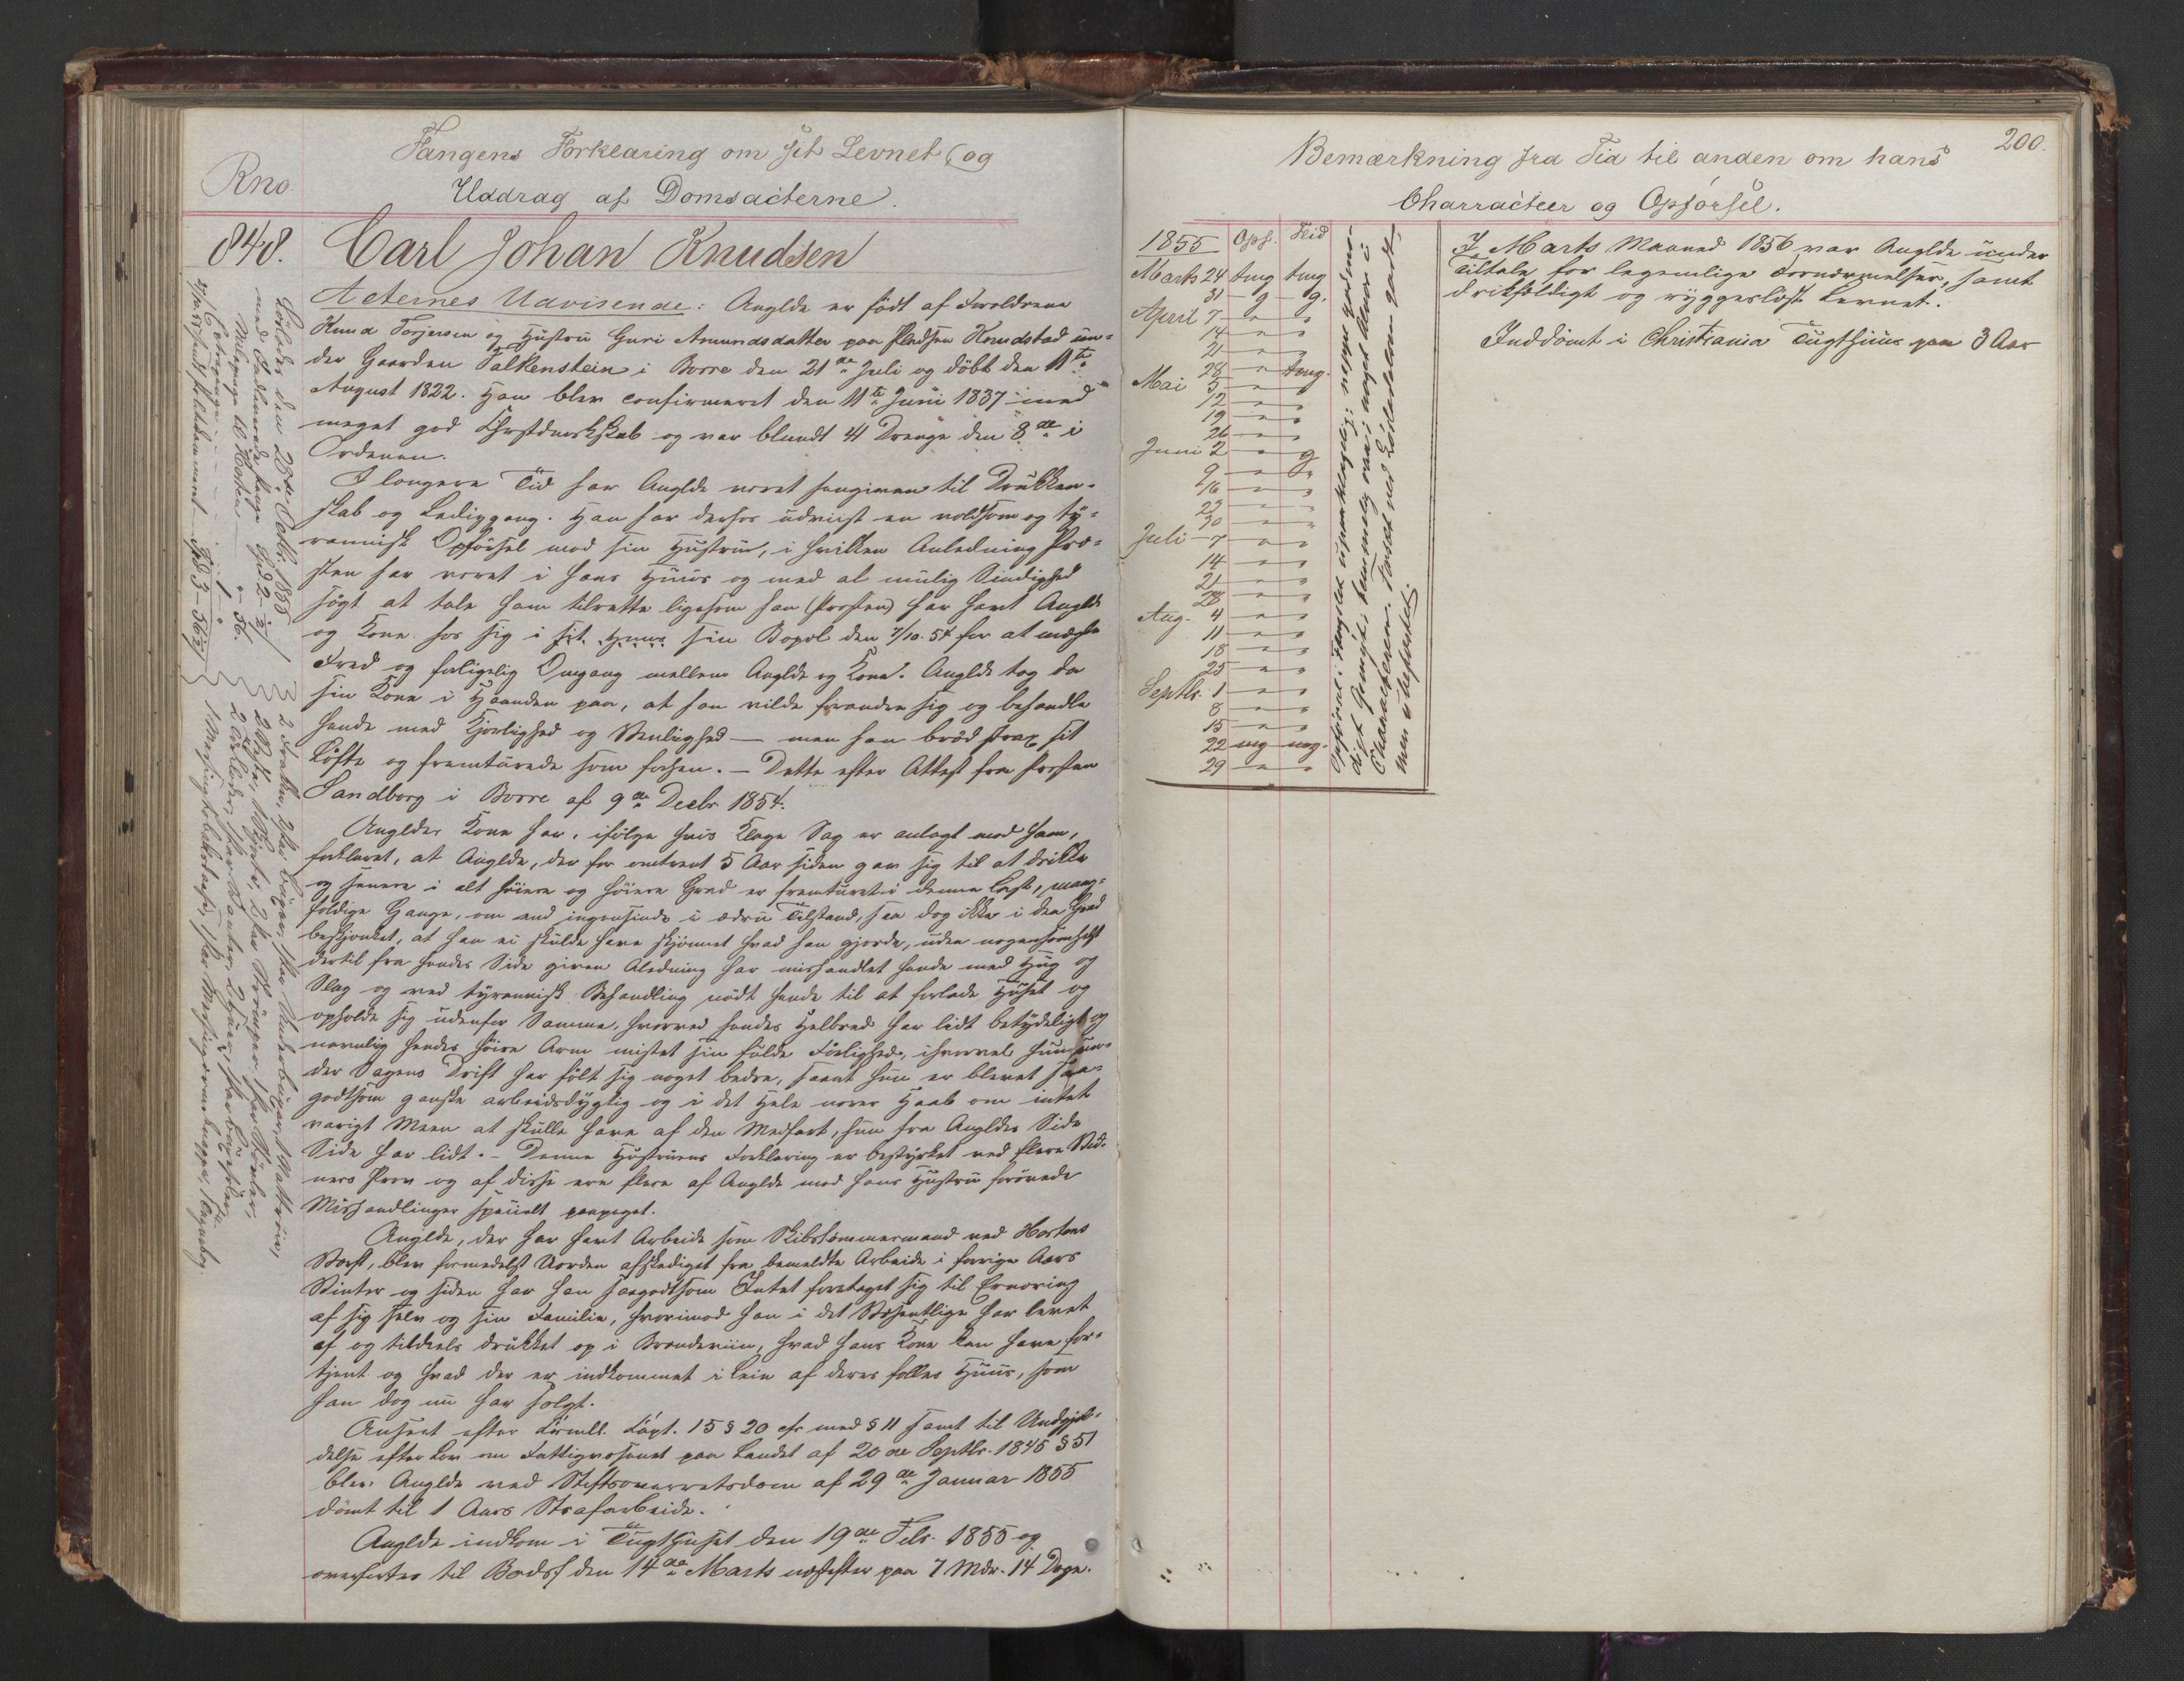 Rno.
Fangens Forklaring om sit Levnet (og
Uddrag af Domsacterne.
848. Carl Johan Knudsen
Acternes Udvisende: Anglde er født af Forældrene
Knud Torgersen og Hustru Guri Amundsdatter paa Pladsen Knudstad un-
der Gaarden Falkenstein i Borre den 21de Juli og döbt den 11te
August 1822. Han blev confirmeret den 11te Juni 1837 med
meget god Christendomskundskab og var blandt 41 Drenge den 8de i
Ordenen.
I længere Tid har Anglde været hengiven til Drukken-
skab og Lediggang. Han har derhos udviist en voldsom og ty-
rannisk Opførsel mod sin Hustru, i hvilken Anledning Præ-
sten har været i hans Huus og med al mulig Sindighed
søgt at tale ham tilrette ligesom han (Præsten) har havt Anglde
og Kone hos sig i sit Huus sin Bopæl den 7/10 54 for at mægle
Fred og forligelig Omgang mellem Anglde og Kone. Anglde tog da
sin Kone i Haanden paa, at han vilde forandre sig og behandle
hende med Kjærlighed og Venlighed — men han brød strax sit
Løfte og fremturede som forhen. — Dette efter Attest fra Præsten
Sandberg i Borre af 9de Decbr 1854.
Angldes Kone har, ifølge hvis Klage Sag er anlagt mod ham,
forklaret, at Anglde, der for omtrent 5 Aar siden gav sig til at drikke
og senere i alt høiere og høiere Grad er fremturet i denne Last, mang-
foldige Gange, om end ingensinde i ædru Tilstand, saa dog ikke i den Grad
beskjænket, at han ei skulde have skjønnet hvad han gjorde, uden nogensomhelst
dertil fra hendes Side given Aledning har mishandlet hende med Hug og
Slag og ved tyrannisk Behandling nødt hende til at forlade Huset og
opholde sig udenfor Samme, hvorved hendes Helbred har lidt betydeligt og
navnlig hendes høire Arm mistet sin fulde Førlighed, ihvorvel hun un-
der Sagens Drift har følt sig noget bedre, samt hun er blevet saa-
godtsom ganske arbeidsdygtig og i det Hele nærer Haab om intet
varigt Meen at skulle have af den Medfart, hun fra Angldes Side
Side har lidt. — Denne Hustruens Forklaring er bestyrket ved flere Vid-
ners Prov og af disse ere flere af Anglde mod hans Hustru forøvede
Mishandlinger specielt paapeget.
Anglde, der har havt Arbeide som Skibstømmermand ved Hortens
Værft, blev formedelst Uorden afskediget fra bemeldte Arbeide i forrige Aars
Vinter og siden har han saagodtsom Intet foretaget sig til Ernæring
af sig selv og sin Familie, hvorimod han i det Væsentlige har levet
af og tildeels drukket op i Brændeviin, hvad hans Kone kan have for-
tjent og hvad der er indkommet i Leie af deres fælles Huus, som
han dog nu har solgt.
Anseet efter Criml. Capt. 15 § 20 cfr med § 11 samt til Undgjæl-
delse efter Lov om Fattigvæsenet paa Landet af 20de Septbr. 1845 § 51
blev Anglde ved Stiftsoverretsdom af 29de Januar 1855
dømt til 1 Aars Strafarbeide.
Anglde indkom i Tugthuset den 19de Febr. 1855 og
overførtes til Bodsf den 14de Marts næstefter paa 7 Mdr. 14 Dage.
Løslades den 28de Octbr. 1855
200.
Bemærkning fra Tid til anden om hans
Charracteer og Opførsel.
1855 Opf. Flid
Marts 24 tmg tmg
31 — g — g.
April 7 — " — "
14 — " — "
21 — " — "
28 — " — tmg.
Mai 5 — " — "
12 — " — "
19 — " — "
26 — " — "
Juni 2 — " — g
9 — " — "
16 — " — "
23 — " — "
30 — " — "
Juli 7 — " — "
14 — " — "
21 — " — "
28 — " — "
Aug. 4 — " — "
11 — " — "
18 — " — "
25 — " — "
Septbr. 1 — " — "
8 — " — "
15 — " — "
22 mg — mg.
29 — " — "
I Marts Maaned 1856 var Anglde under
Tiltale for legemlige Fornærmelser, samt
drikfældigt og ryggesløst Levnet.
Inddömt i Christiania Tugthuus paa 3 Aar